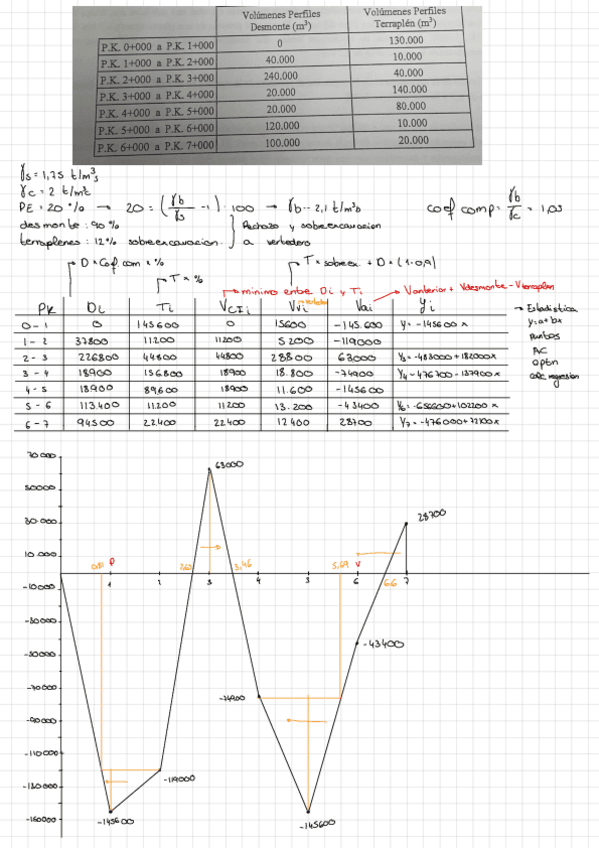 Volúmenes Perfiles Desmonte (m³) Volúmenes Perfiles Terraplén (m³)
P.K. 0+000 a P.K. 1+000 0 130.000
P.K. 1+000 a P.K. 2+000 40.000 10.000
P.K. 2+000 a P.K. 3+000 240.000 40.000
P.K. 3+000 a P.K. 4+000 20.000 140.000
P.K. 4+000 a P.K. 5+000 20.000 80.000
P.K. 5+000 a P.K. 6+000 120.000 10.000
P.K. 6+000 a P.K. 7+000 100.000 20.000
γs = 1,75 t/m³s
γc = 2 t/m³c
PE = 20 % → 20 = (γb/γs - 1) · 100 → γb = 2,1 t/m³b coef comp = γb/γc = 1,05
desmonte: 90 %
terraplenes: 12% sobreexcavacion.
Rechazo y sobreexcavacion
a vertedero
D × Cof. com × % T × sobreex. + D × (1-0,9)
T × %
mínimo entre Di y Ti Vanterior + Vdesmonte - Vterraplen
PK Di Ti VCIi Vvi Vai yi
0-1 0 145600 0 15600 -145.600 y = -145600 x
1-2 37800 11200 11200 5200 -119000
2-3 226800 44800 44800 28800 63000 y3 = -483000 + 182000x
3-4 18900 156800 18900 18.800 -74900 y4 = 476700 - 137900x
4-5 18900 89,600 18900 11.600 -145600
5-6 113.400 11.200 11200 13.200 -43400 y6 = -656600 + 102200x
6-7 94500 22.400 22400 12400 28700 y7 = -476000 + 72100x
→ Estadistica
y = a + bx
puntos
AC
optn
calc regresion
70.000
50000
30.000
10.000
-10000
-30.000
-50.000
-70.000
-90.000
-110.000
-130.000
-160.000
63000
28700
0,81 P 2,65 3,46 5,69 V 6.6
1 3 4 5 6 7
-43400
-74900
1
-119000
-145600
-145600